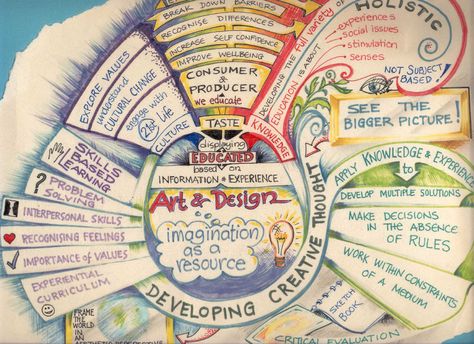 BREAK DOWN BARRIERS
RECOGNISE DIFFERENCES
INCREASE SELF CONFIDENCE
IMPROVE WELLBEING
CONSUMER
&
PRODUCER
we educate
TASTE
displaying
EDUCATED
based on
INFORMATION + EXPERIENCE
Art & Design
imagination
as a
resource
DEVELOPING CREATIVE THOUGHT
EXPLORE VALUES
understand
CULTURAL CHANGE
engage with
21st C
Life
CULTURE
KNOWLEDGE
DEVELOPING THE full variety of
EDUCATION IS ABOUT
HOLISTIC
experiences
social issues
stimulation
senses
NOT SUBJECT
BASED!
SEE THE
BIGGER PICTURE!
APPLY KNOWLEDGE & EXPERIENCE
to
DEVELOP MULTIPLE SOLUTIONS
MAKE DECISIONS
IN THE ABSENCE
OF RULES
WORK WITHIN CONSTRAINTS
OF A MEDIUM
SKETCH
BOOK
CRITICAL EVALUATION
SKILLS
BASED
LEARNING
?
PROBLEM
SOLVING
INTERPERSONAL SKILLS
RECOGNISING FEELINGS
IMPORTANCE of VALUES
EXPERIENTIAL
CURRICULUM
FRAME
THE WORLD
IN AN
AESTHETIC PERSPECTIVE